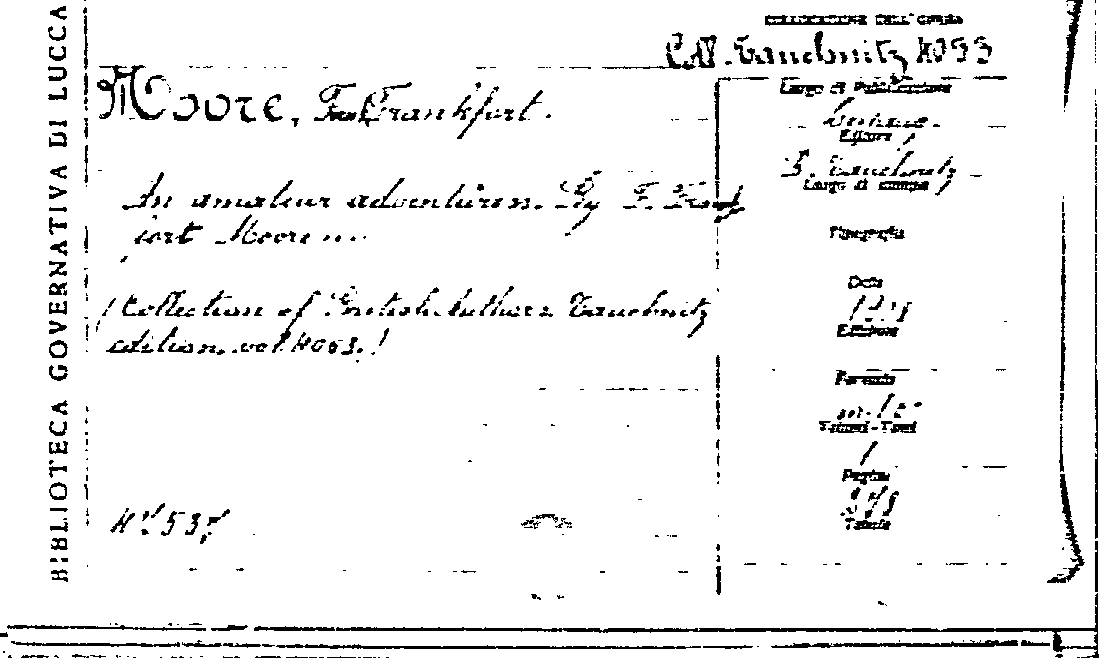 BIBLIOTECA GOVERNATIVA DI LUCCA
COLLOCAZIONE DELL'OPERA
Tauchnitz 4053
Moore, F. Frankfort.
An amateur adventuress. By F. Frank
fort Moore ...
(Collection of British Authors Tauchnitz
edition. vol. 4053.)
Luogo di Pubblicazione
Editore
B. Tauchnitz
Luogo di stampa
Tipografia
Data
Edizione
Formato
Volumi-Tomi
1
Pagine
Tavole